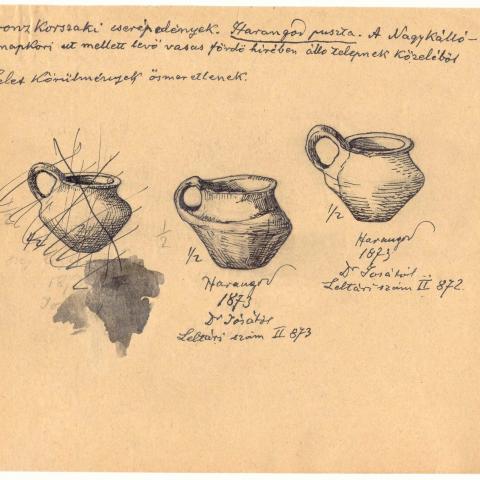 bronz Korszaki cserépedények. Harangod puszta. A Nagykálló-
napkori ut mellett levő vasas fürdő hirében álló telepnek közeléből
Lelet Körülmények ösmeretlenek.
1/2
1/2
1/2
1/2
Harangod
1873
Dr Jósától
Leltári szám II 873
Harangod
1873
Dr Jósától
Leltári szám II 872.